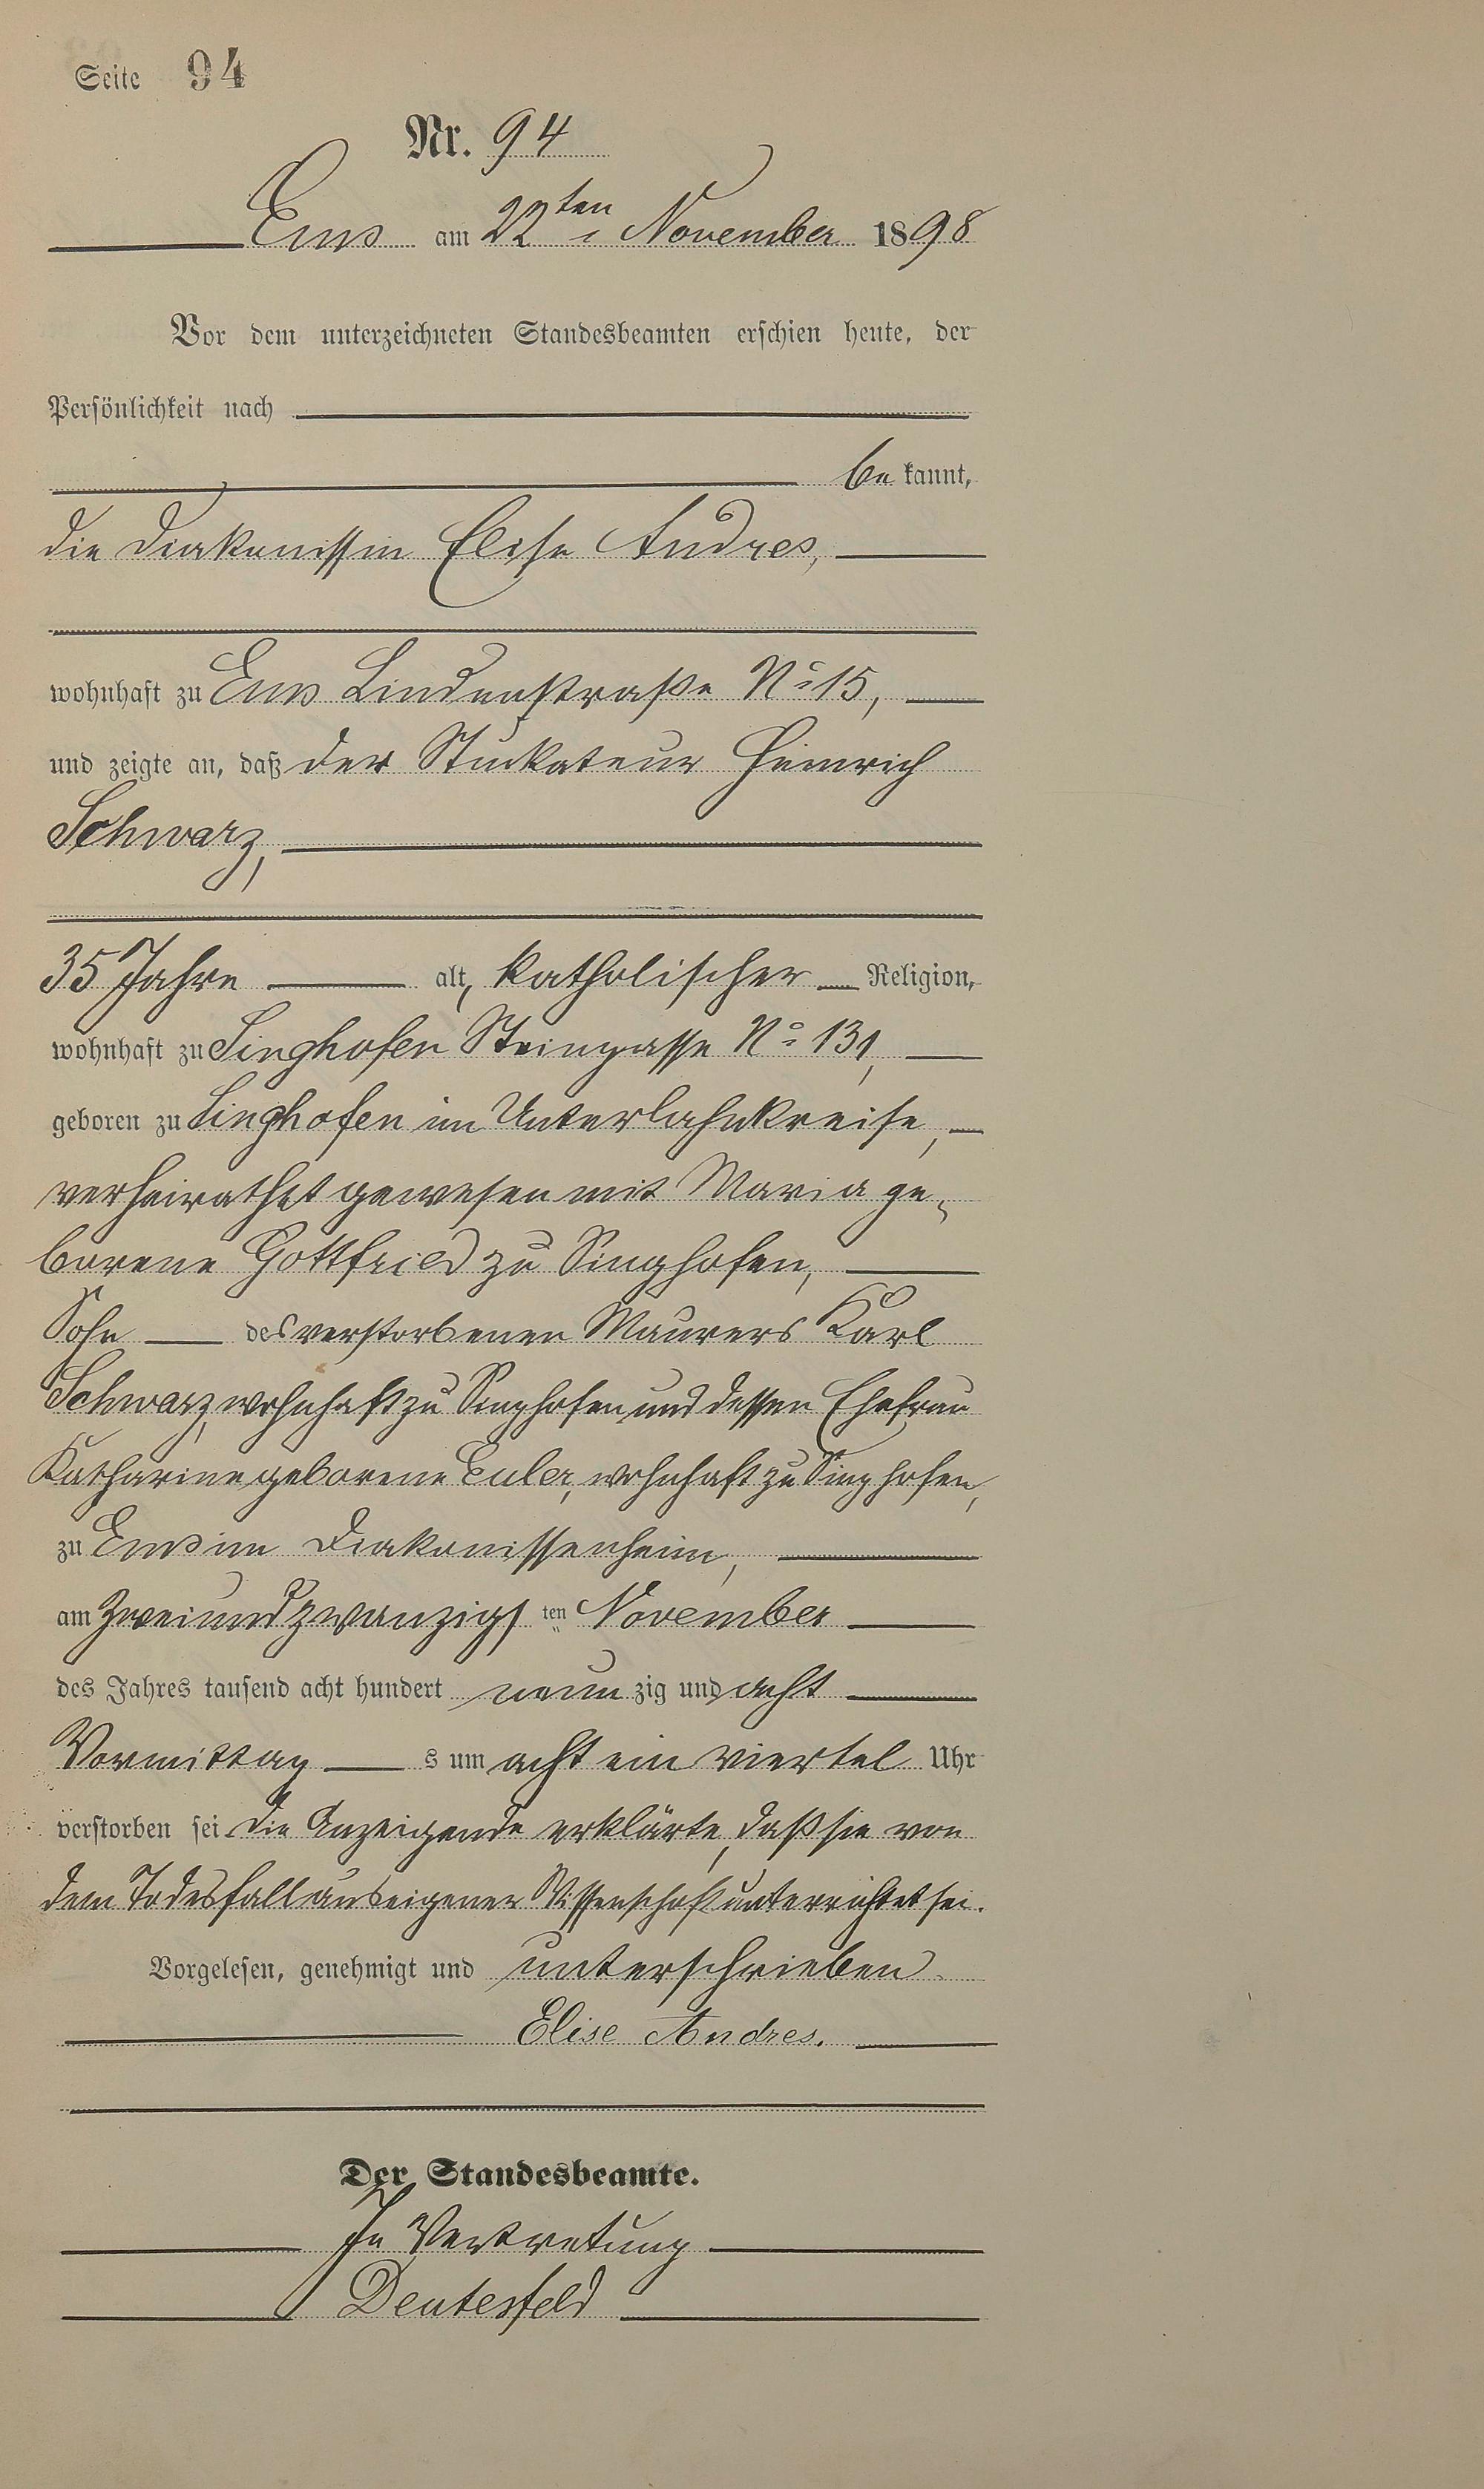 Seite 94
Nr. 94
Ems am 22ten November 1898
Vor dem unterzeichneten Standesbeamten erschien heute, der
Persönlichkeit nach
be kannt,
die Diakonissin Elise Andres,
wohnhaft zu Ems Lindenstraße No 15,
und zeigte an, daß der Stuckateur Heinrich
Schwarz,
35 Jahre alt, katholischer Religion,
wohnhaft zu Singhofen Steingasse No 131,
geboren zu Singhofen im Unterlahnkreise,
verheirathet gewesen mit Maria ge-
borene Gottfried zu Singhofen,
Sohn des verstorbenen Maurers Karl
Schwarz, wohnhaft zu Singhofen und dessen Ehefrau
Katharine geborene Euler, wohnhaft zu Singhofen,
zu Ems im Diakonissenheim,
am zweiundzwanzigs ten November
des Jahres tausend acht hundert neun zig und acht
Vormittag s um acht ein viertel Uhr
verstorben sei. Die Anzeigende erklärte, daß sie von
dem Todesfall aus eigener Wissenschaft unterrichtet sei.
Vorgelesen, genehmigt und unterschrieben.
Elise Andres.
Der Standesbeamte.
In Vertretung
Deutesfeld